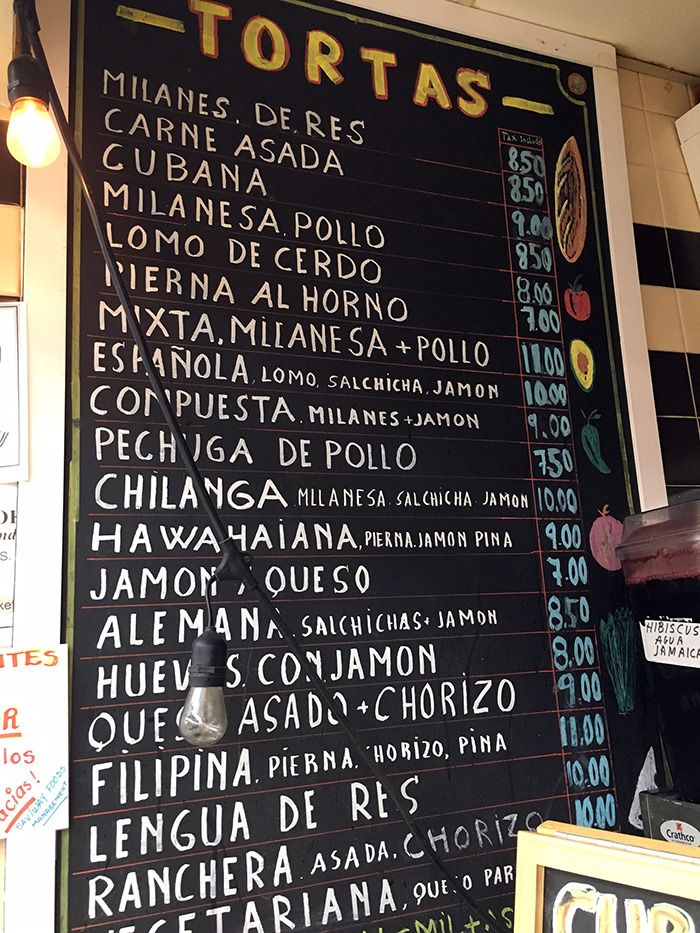 TORTAS
Tax Included
MILANES. DE. RES 8.50
CARNE ASADA 8.50
CUBANA 9.00
MILANESA. POLLO 8.50
LOMO DE CERDO 8.00
PIERNA AL HORNO 7.00
MIXTA, MILANESA + POLLO 11.00
ESPAÑOLA, LOMO, SALCHICHA, JAMON 10.00
COMPUESTA. MILANES + JAMON 9.00
PECHUGA DE POLLO 7.50
CHILANGA MILANESA. SALCHICHA. JAMON 10.00
HAWAHAIANA, PIERNA. JAMON PINA 9.00
JAMON Y QUESO 7.00
ALEMANA SALCHICHAS + JAMON 8.50
HUEVOS CON JAMON 8.00
QUESO ASADO + CHORIZO 9.00
FILIPINA, PIERNA, CHORIZO, PINA 11.00
LENGUA DE RES 10.00
RANCHERA. ASADA, CHORIZO 10.00
VEGETARIANA, QUESO
HIBISCUS
AGUA
JAMAICA
Crathco
SAV/WAY FOODS
MANAGEMENT